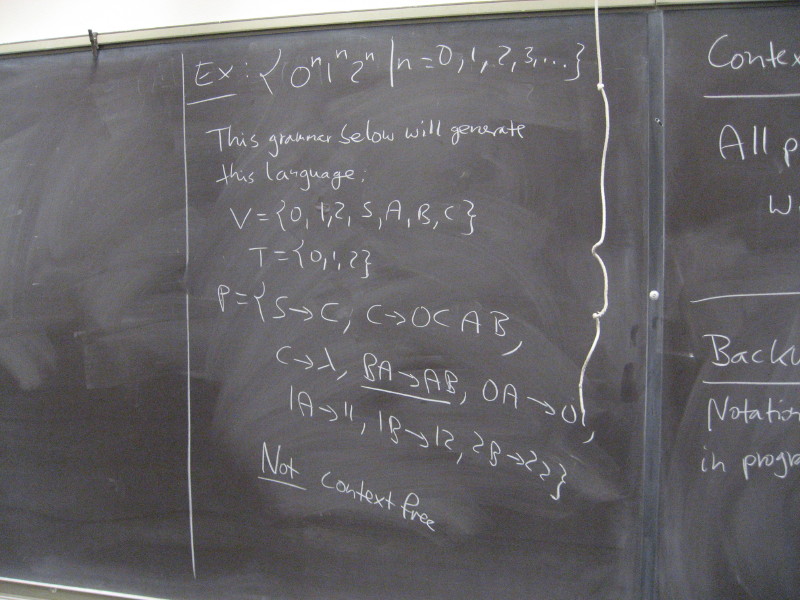 Ex: { 0ⁿ1ⁿ2ⁿ | n = 0, 1, 2, 3, ... }
This grammar below will generate
this language:
V = {0, 1, 2, S, A, B, C}
T = {0, 1, 2}
P = { S → C, C → 0CAB,
C → λ, BA → AB, 0A → 01,
1A → 11, 1B → 12, 2B → 22 }
Not context free
Contex
All p
w
Backu
Notation
in progra